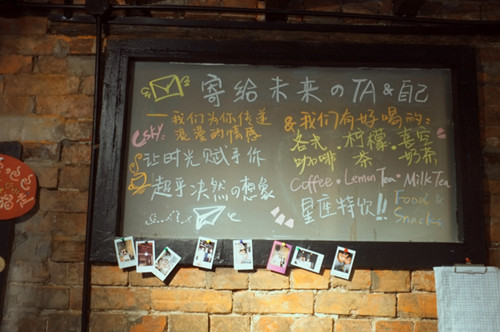 寄给未来のTA&自己
一我们为你传递
浪漫的情感
让时光赋予你
超乎决然の想象
&我们有好喝的:
各式·柠檬·喜客
咖啡 茶 奶茶
Coffee·Lemon Tea·Milk Tea
星匯特饮!!
Food &
Snacks